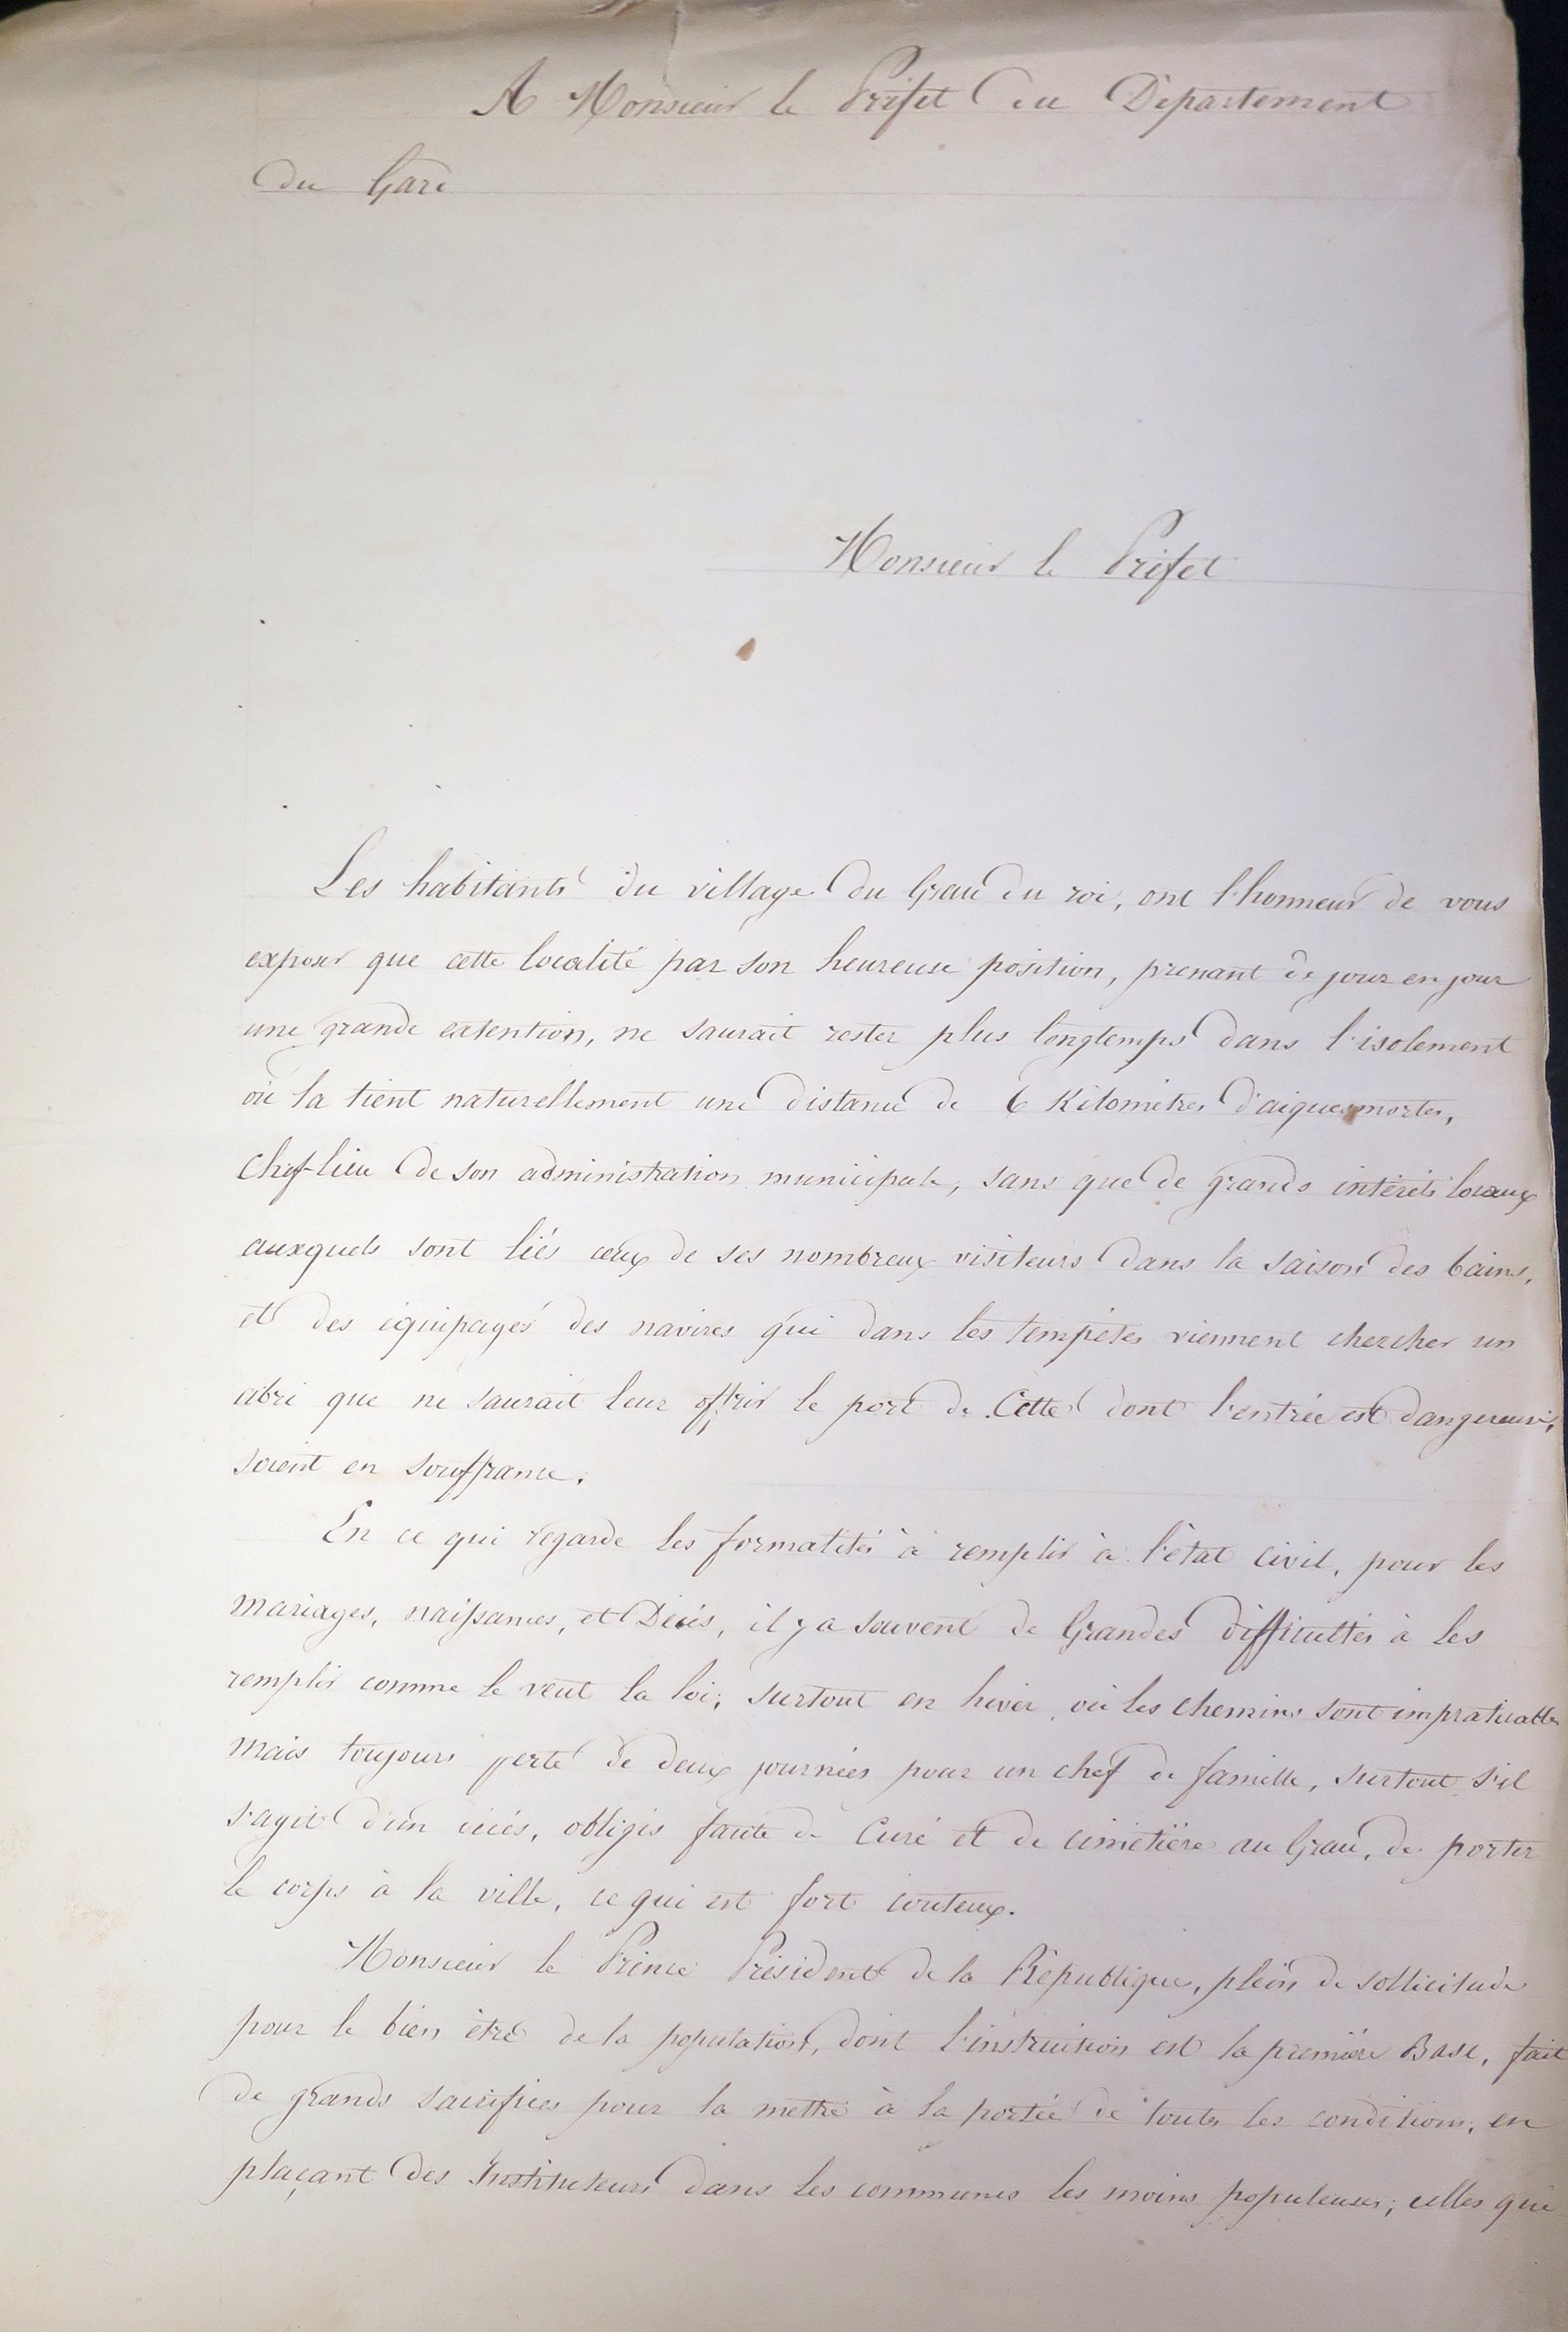 A Monsieur le Préfet du Département
du Gard
Monsieur le Préfet
Les habitants du village du Grau du roi, ont l'honneur de vous
exposer que cette localité par son heureuse position, prenant de jour en jour
une grande extention, ne saurait rester plus longtemps dans l'isolement
où la tient naturellement une distance de 6 Kilomètres d'aiguesmortes,
chef-lieu de son administration municipale, sans que de grands intérêts locaux
auxquels sont liés ceux de ses nombreux visiteurs dans la saison des bains,
et des équipages des navires qui dans les tempêtes viennent chercher un
abri que ne saurait leur offrir le port de Cette dont l'entrée est dangereuse,
soient en souffrance.
En ce qui regarde les formalités à remplir à l'état civil, pour les
mariages, naissances, et Décès, il y a souvent de Grandes difficultés à les
remplir comme le veut la loi; surtout en hiver, où les chemins sont impraticables
mais toujours perte de deux journées pour un chef de famille, surtout s'il
s'agit d'un décés, obligés faute de Curé et de cimetière au Grau, de porter
le corps à la ville, ce qui est fort couteux.
Monsieur le Prince Président de la République, plein de sollicitude
pour le bien être de la population, dont l'instruction est la première Base, fait
de grands sacrifices pour la mettre à la portée de toutes les conditions, en
plaçant des Instituteurs dans les communes les moins populeuses; celles que